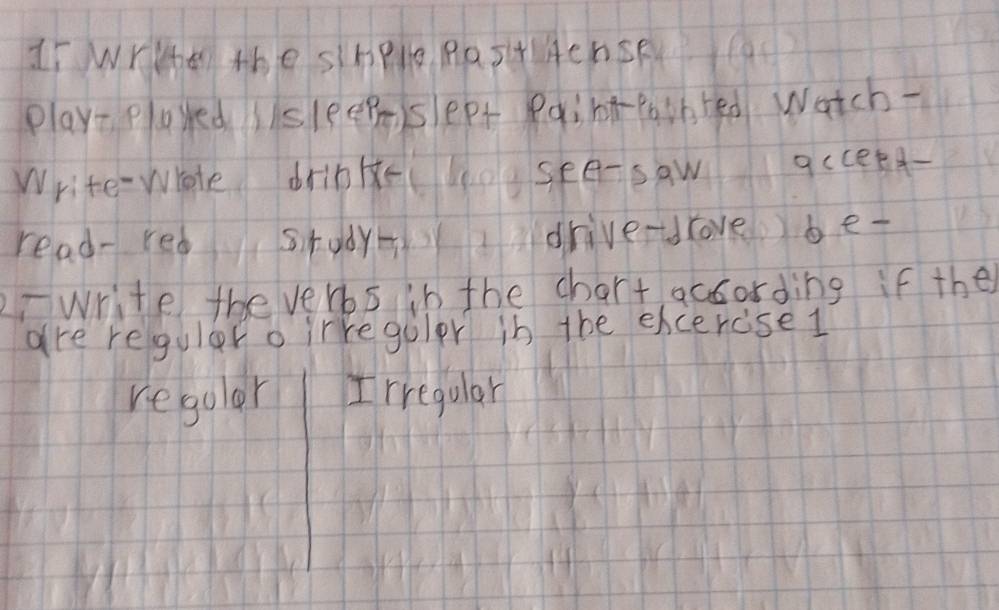 1.- Write the simple Past tense
Play-Played sleep-slept Paint-Painted Watch-
Write-Wrote drink- see-saw accept-
read-red study- drive-drove be-
2.- Write the verbs in the chart according if they
are regular o irregular in the excercise 1
regular Irregular